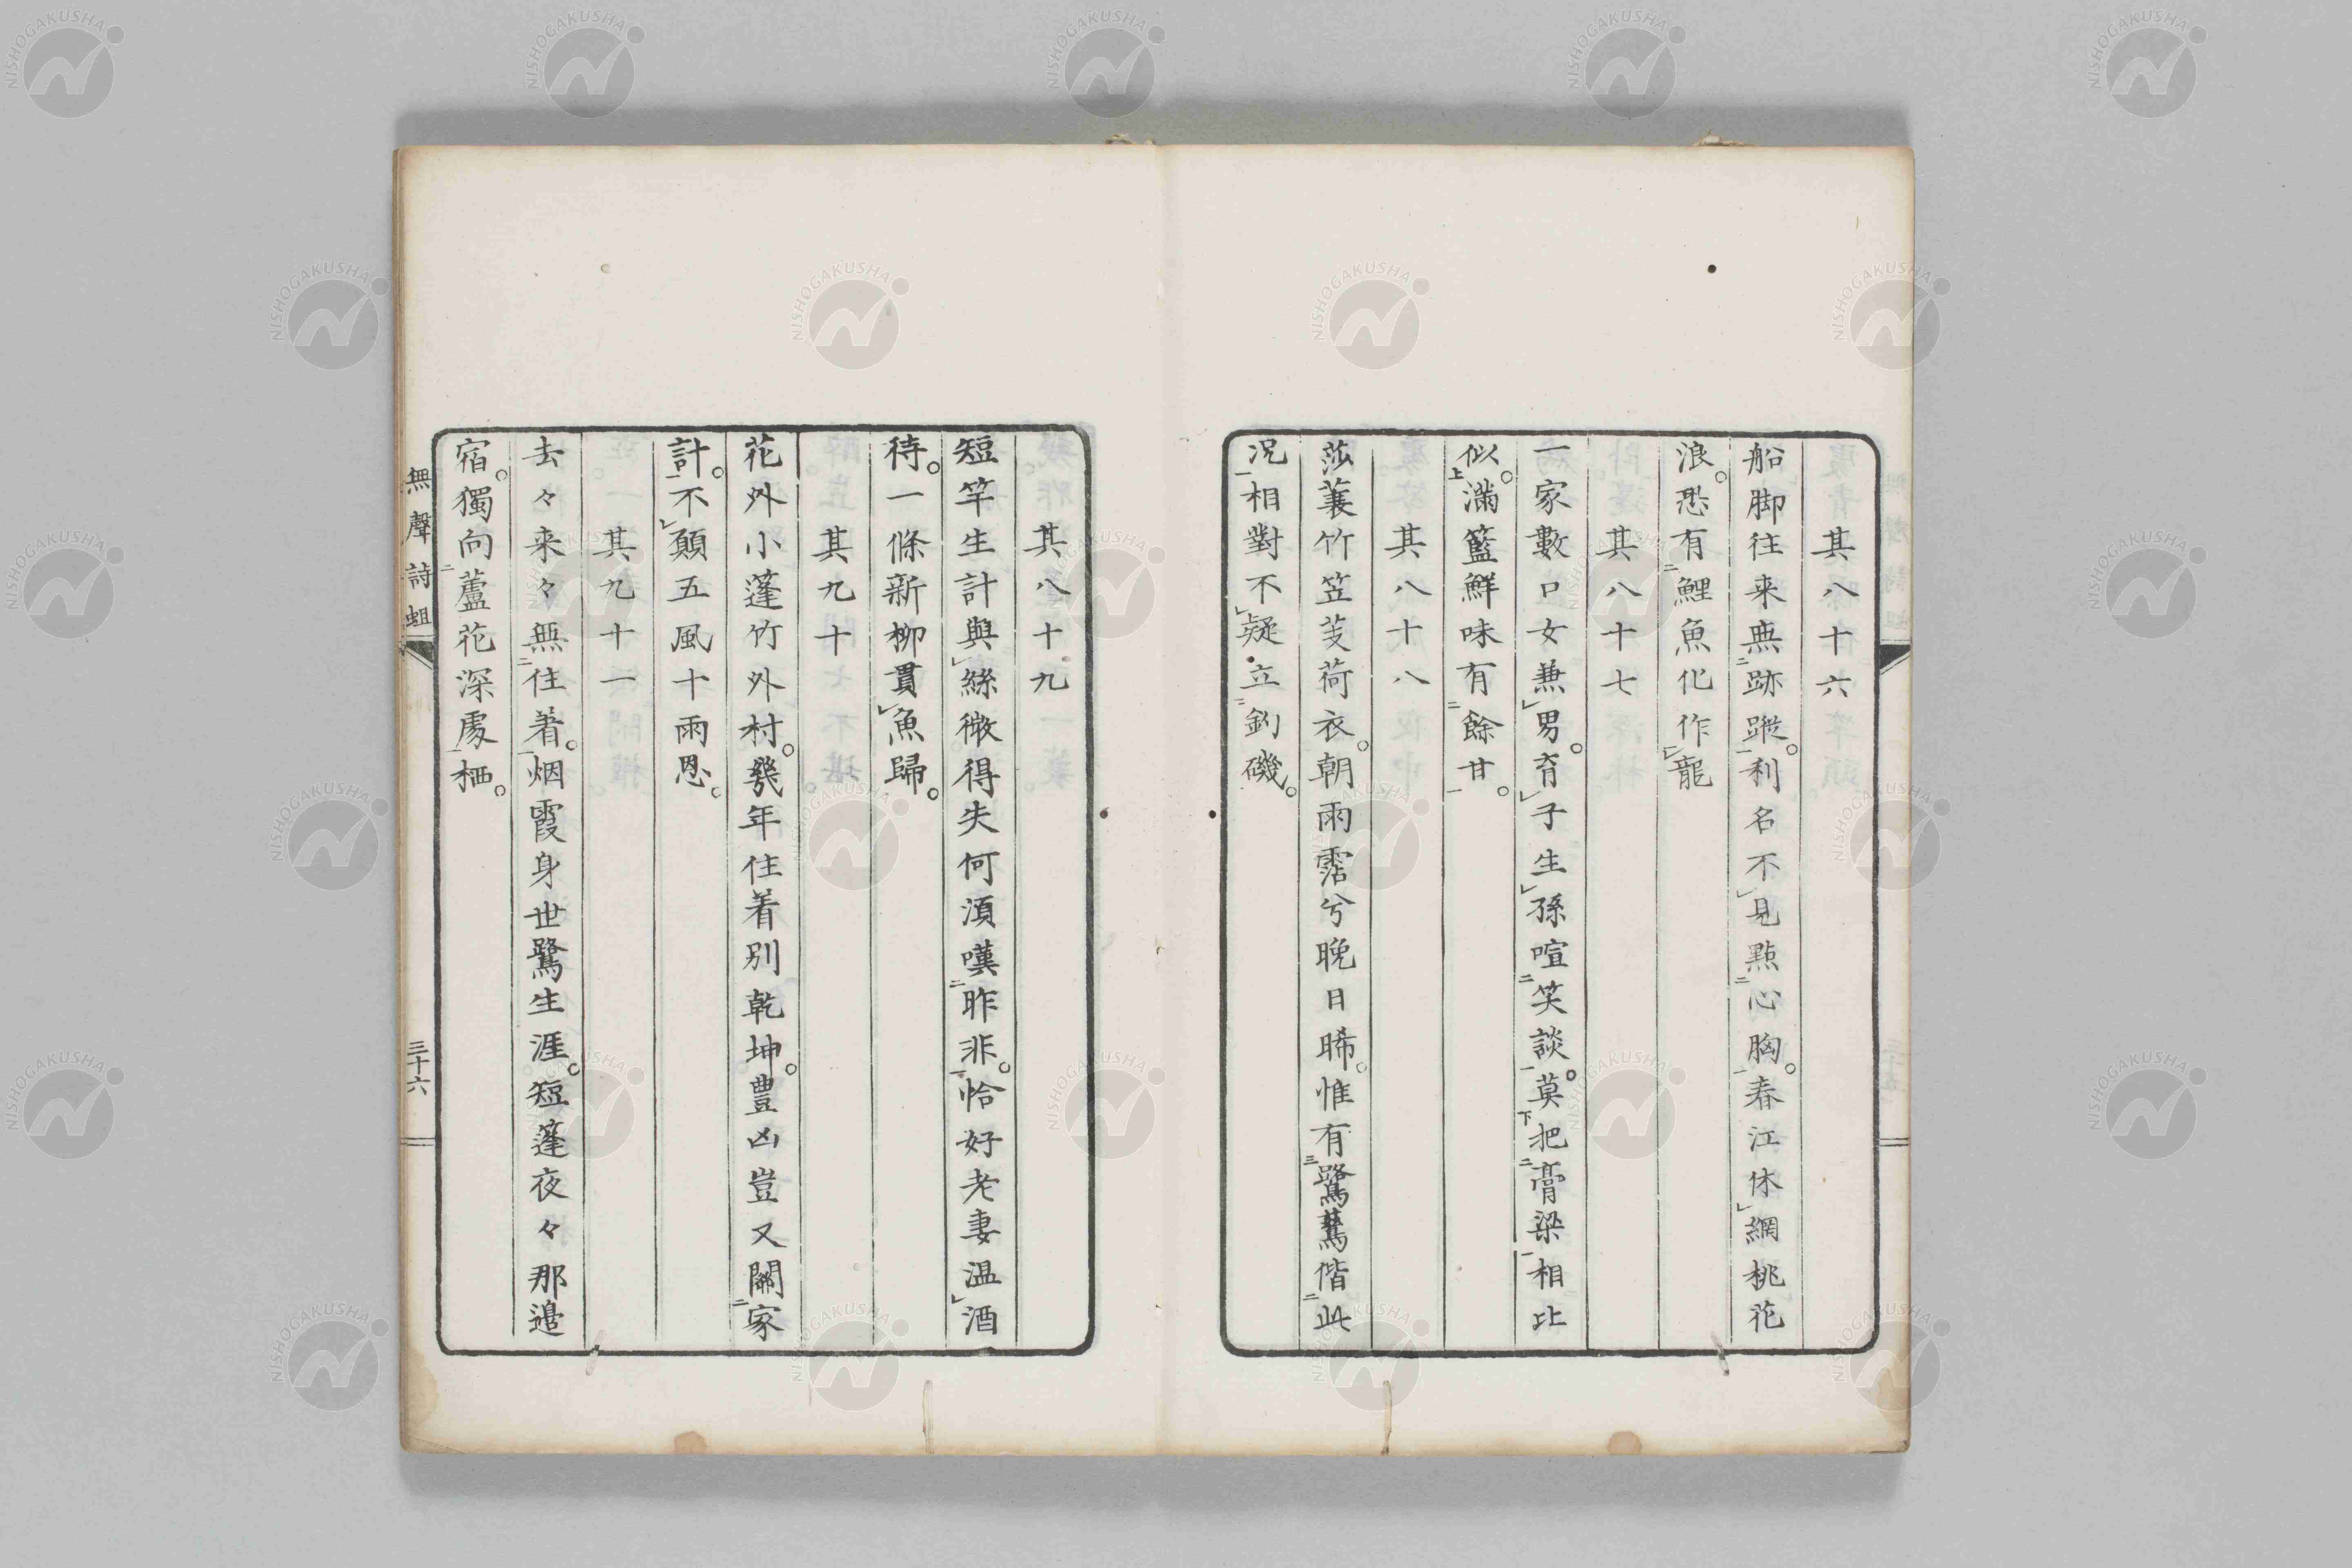 其八十六
船脚往来無跡蹤。利名不見點心胸。春江休網桃花
浪。恐有鯉魚化作龍
其八十七
一家數口女兼男。育子生孫喧笑談。莫把膏粱相比
似。滿籃鮮味有餘甘。
其八十八
莎蓑竹笠芰荷衣。朝雨霑兮晚日晞。惟有鷺鷥偕此
況相對不疑立釣磯。
其八十九
短竿生計與絲微得失何須嘆昨非。恰好老妻温酒
待。一條新柳貫魚歸。
其九十
花外小蓬竹外村。幾年住着別乾坤。豊凶豈又關家
計。不願五風十雨恩。
其九十一
去々来々無住着。烟霞身世鷺生涯。短篷夜々那邉
宿。獨向蘆花深處栖。
無聲詩蛆
三十六
NISHOGAKUSHA